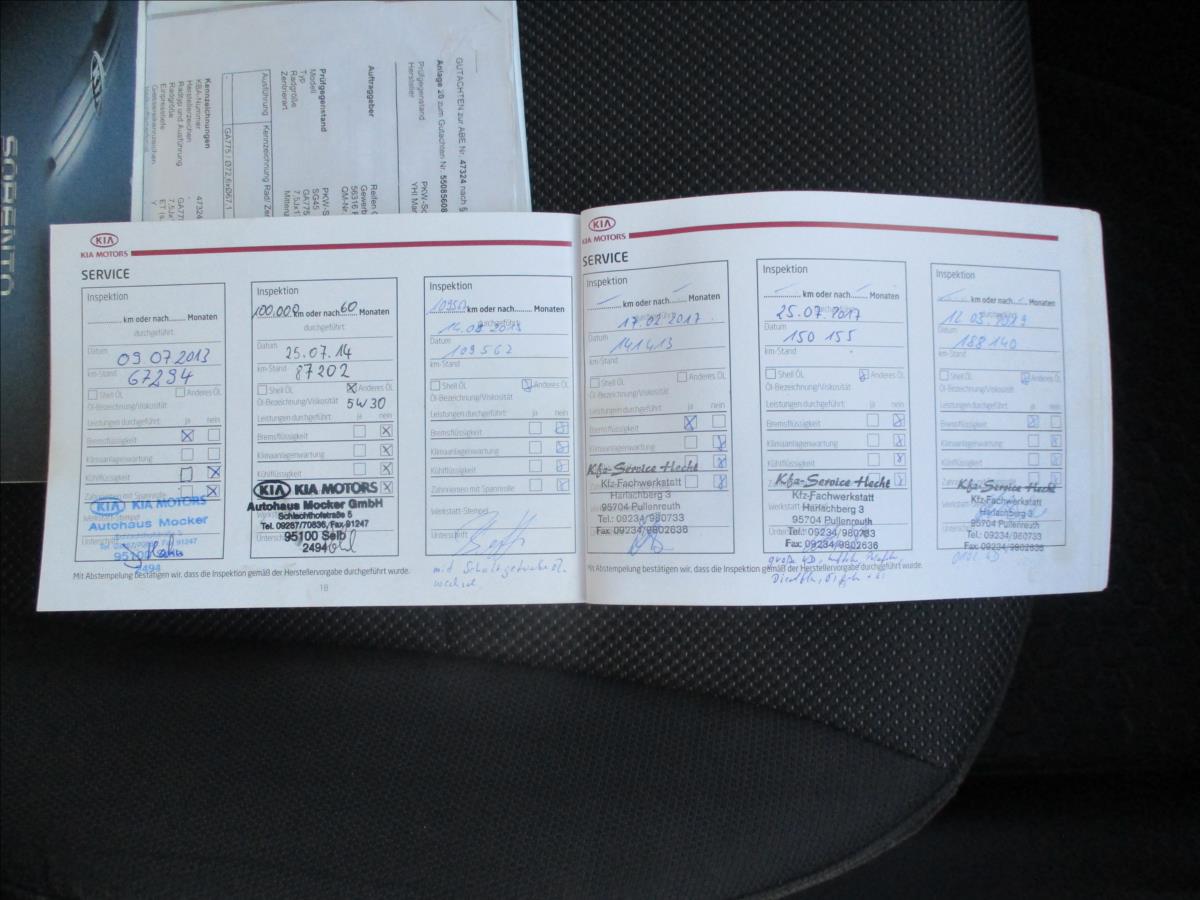 SORENTO
KIA
GUTACHTEN zur ABE Nr. 47324 nach §
Anlage 20 zum Gutachten Nr. 55085608
Prüfgegenstand PKW-So
Hersteller YHI Mar
Auftraggeber Reifen G
Gewerb
56316 F
QM-Nr.
Prüfgegenstand PKW-S
Modell SG45
Typ GA775
Radgröße 7,5Jx1
Zentrierart Mittenz
Ausführung Kennzeichnung Rad/ Ze
GA775 / Ø72,6xØ67,1
Kennzeichnungen
KBA-Nummer 47324
Herstellerzeichen
Radtyp und Ausführung GA77
Radgröße 7,5Jx
Einpresstiefe ET (s.
KIA
KIA MOTORS
SERVICE
Inspektion
km oder nach Monaten
durchgeführt:
Datum
09 07 2013
km-Stand
67294
Shell ÖL Anderes ÖL
Öl-Bezeichnung/Viskosität
Leistungen durchgeführt: ja nein
Bremsflüssigkeit
Klimaanlagenwartung
Kühlflüssigkeit
Zahnriemen mit Spannrolle
KIA KIA MOTORS
Werkstatt-Stempel
Autohaus Mocker
Unterschrift
95100 Selb
2494
Inspektion
100.000 km oder nach 60 Monaten
durchgeführt:
Datum
25.07.14
km-Stand
87202
Shell ÖL Anderes ÖL
Öl-Bezeichnung/Viskosität
5W30
Leistungen durchgeführt: ja nein
Bremsflüssigkeit
Klimaanlagenwartung
Kühlflüssigkeit
KIA KIA MOTORS
Autohaus Mocker GmbH
Schlachthofstraße 5
Tel. 09287/70836, Fax 91247
95100 Selb
2494
Inspektion
km oder nach Monaten
durchgeführt:
Datum
109562
km-Stand
Shell ÖL Anderes ÖL
Öl-Bezeichnung/Viskosität
Leistungen durchgeführt: ja nein
Bremsflüssigkeit
Klimaanlagenwartung
Kühlflüssigkeit
Zahnriemen mit Spannrolle
Werkstatt-Stempel
Unterschrift
mit Schaltgetriebeöl
wechsel
Mit Abstempelung bestätigen wir, dass die Inspektion gemäß der Herstellervorgabe durchgeführt wurde.
18
KIA
KIA MOTORS
SERVICE
Inspektion
km oder nach Monaten
durchgeführt:
17.02.2017
Datum
141413
km-Stand
Shell ÖL Anderes ÖL
Öl-Bezeichnung/Viskosität
Leistungen durchgeführt: ja nein
Bremsflüssigkeit
Klimaanlagenwartung
Kfz-Service Hecht
Kfz-Fachwerkstatt
Harlachberg 3
95704 Pullenreuth
Tel.: 09234/980733
Fax: 09234/9802636
Inspektion
km oder nach Monaten
durchgeführt:
25.07.2017
Datum
150 155
km-Stand
Shell ÖL Anderes ÖL
Öl-Bezeichnung/Viskosität
Leistungen durchgeführt: ja nein
Bremsflüssigkeit
Klimaanlagenwartung
Kühlflüssigkeit
Kfz-Service Hecht
Kfz-Fachwerkstatt
Harlachberg 3
95704 Pullenreuth
Tel.: 09234/980733
Fax: 09234/9802636
Inspektion
km oder nach Monaten
durchgeführt:
12 03 2019
Datum
188 140
km-Stand
Shell ÖL Anderes ÖL
Öl-Bezeichnung/Viskosität
Leistungen durchgeführt: ja nein
Bremsflüssigkeit
Klimaanlagenwartung
Kühlflüssigkeit
Kfz-Service Hecht
Kfz-Fachwerkstatt
Harlachberg 3
95704 Pullenreuth
Tel.: 09234/980733
Fax: 09234/9802636
Mit Abstempelung bestätigen wir, dass die Inspektion gemäß der Herstellervorgabe durchgeführt wurde.